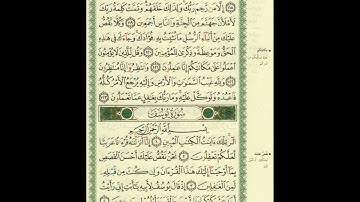 إِلَّا مَن رَّحِمَ رَبُّكَ وَلِذَٰلِكَ خَلَقَهُمْ وَتَمَّتْ كَلِمَةُ رَبِّكَ
لَأَمْلَأَنَّ جَهَنَّمَ مِنَ الْجِنَّةِ وَالنَّاسِ أَجْمَعِينَ ﴿١١٩﴾ وَكُلًّا نَّقُصُّ
عَلَيْكَ مِنْ أَنبَاءِ الرُّسُلِ مَا نُثَبِّتُ بِهِ فُؤَادَكَ وَجَاءَكَ فِي هَٰذِهِ
الْحَقُّ وَمَوْعِظَةٌ وَذِكْرَىٰ لِلْمُؤْمِنِينَ ﴿١٢٠﴾ وَقُل لِّلَّذِينَ لَا يُؤْمِنُونَ
اعْمَلُوا عَلَىٰ مَكَانَتِكُمْ إِنَّا عَامِلُونَ ﴿١٢١﴾ وَانتَظِرُوا إِنَّا مُنتَظِرُونَ
﴿١٢٢﴾ وَلِلَّهِ غَيْبُ السَّمَاوَاتِ وَالْأَرْضِ وَإِلَيْهِ يُرْجَعُ الْأَمْرُ كُلُّهُ
فَاعْبُدْهُ وَتَوَكَّلْ عَلَيْهِ وَمَا رَبُّكَ بِغَافِلٍ عَمَّا تَعْمَلُونَ ﴿١٢٣﴾
سُورَةُ يُوسُفَ
بِسْمِ اللَّهِ الرَّحْمَٰنِ الرَّحِيمِ
الر تِلْكَ آيَاتُ الْكِتَابِ الْمُبِينِ ﴿١﴾ إِنَّا أَنزَلْنَاهُ قُرْآنًا عَرَبِيًّا
لَّعَلَّكُمْ تَعْقِلُونَ ﴿٢﴾ نَحْنُ نَقُصُّ عَلَيْكَ أَحْسَنَ الْقَصَصِ
بِمَا أَوْحَيْنَا إِلَيْكَ هَٰذَا الْقُرْآنَ وَإِن كُنتَ مِن قَبْلِهِ
لَمِنَ الْغَافِلِينَ ﴿٣﴾ إِذْ قَالَ يُوسُفُ لِأَبِيهِ يَا أَبَتِ إِنِّي رَأَيْتُ